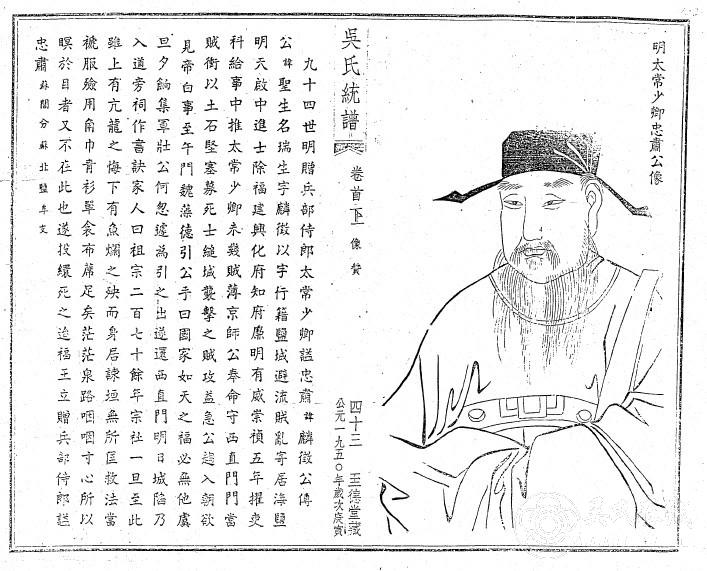 明太常少卿忠肅公像
吳氏統譜
卷首下 像贊
四十三 至德堂藏
公元一九五〇年歲次庚寅
九十四世明贈兵部侍郎太常少卿諡忠肅諱麟徵公傳
公諱聖生名瑞生字麟徵以字行籍鹽城避流賊亂寄居海鹽
明天啟中進士除福建興化府知府廉明有威崇禎五年擢吏
科給事中推太常少卿未幾賊薄京師公奉命守西直門門當
賊衝以土石堅塞募死士縋城襲擊之賊攻益急公趨入朝欲
見帝白事至午門魏藻德引公手曰國家如天之福必無他虞
旦夕餉集軍壯公何忽遽為引之出遂還西直門明日城陷乃
入道旁祠作書訣家人曰祖宗二百七十餘年宗社一旦至此
雖上有亢龍之悔下有魚爛之殃而身居諫垣無所匡救法當
褫服殮用角巾青衫單衾布蓆足矣茫茫泉路咽咽寸心所以
瞑於目者又不在此也遂投繯死之迨福王立贈兵部侍郎諡
忠肅 蘇閶分蘇北鹽阜支